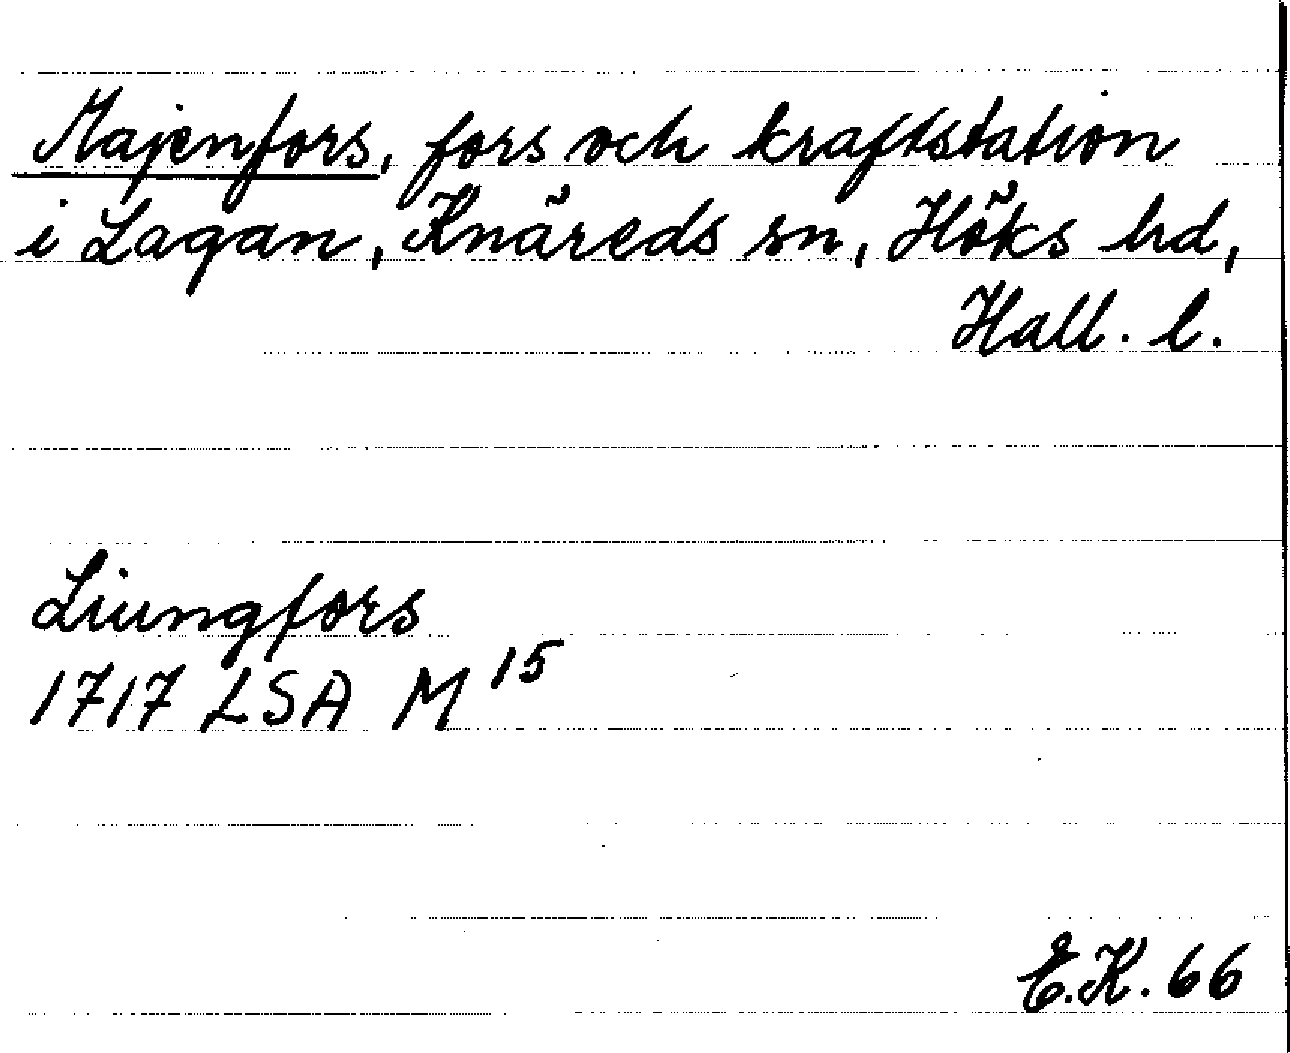 Majenfors, fors och kraftstation
i Lagan, Knäreds sn, Höks hd,
Hall. l.
Liungfors
1717 LSA M 15
E.K. 66